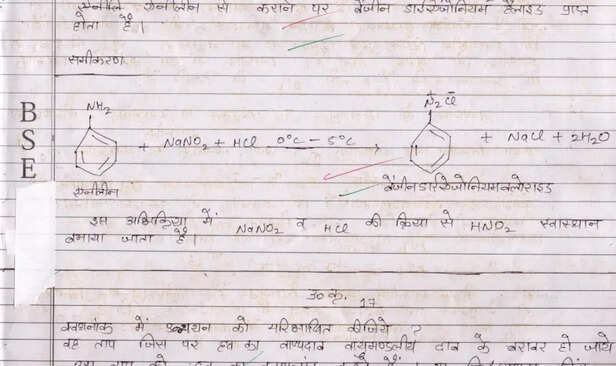 एनीलीन से कराने पर बेंजीन डाईएजोनियम हेलाइड प्राप्त
होता है।
समीकरण
BSE
NH2
N2 Cl
+ NaNO2 + HCl 0°C - 5°C → + NaCl + 2H2O
एनीलीन
बेंजीन डाईएजोनियम क्लोराइड
इस अभिक्रिया में NaNO2 व HCl की क्रिया से HNO2 स्वास्थान
बनाया जाता है।
उ० क्र. 17
क्वथनांक में उन्नयन को परिभाषित कीजिये ?
वह ताप जिस पर द्रव का वाष्पदाब वायुमण्डलीय दाब के बराबर हो जाये